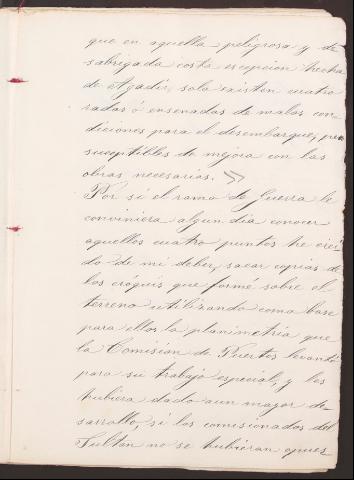 que en aquella peligrosa y de-
sabrigada costa escepcion hecha
de Agadir, solo existen cuatro
radas ó ensenadas de malas con-
diciones para el desembarque, pero
suceptibles de mejora con las
obras necesarias.
Por si el ramo de Guerra le
conviniera algun dia conocer
aquellos cuatro puntos he crei-
do de mi deber, sacar copias de
los cróquis que formé sobre el
terreno utilizando como base
para ellos la planimetría que
la Comisión de Puertos levantó
para su trabajo especial, y les
hubiera dado aun mayor de-
sarrollo, si los comisionados del
Sultan no se hubieran opues-